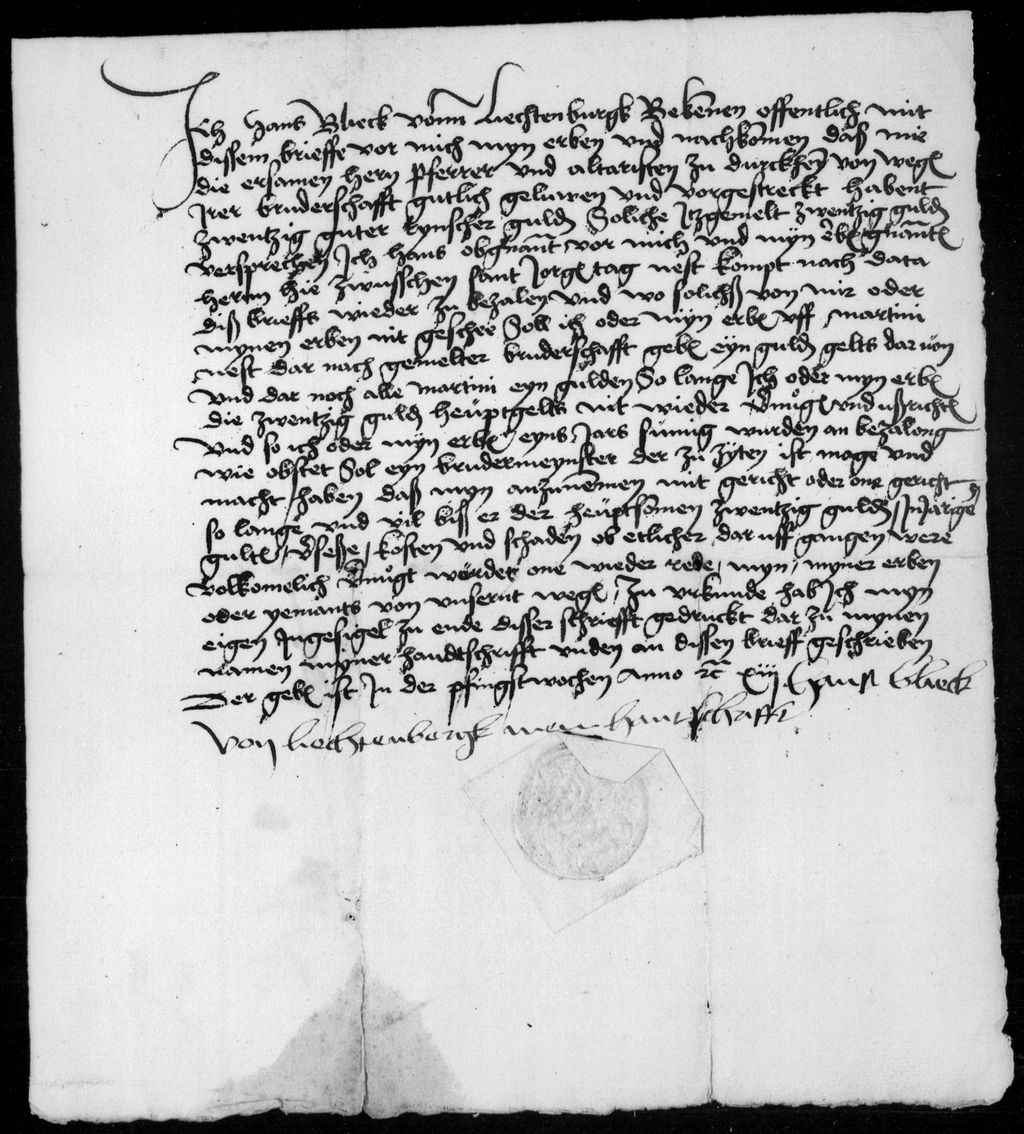 Ich Hans Blieck vonn Liechtenburgk Bekennen offentlich mit
dissem brieffe vor mich myn erben und nachkomen das mir
die ersamen hern pferrer und altaristen zu durckheym von wegen
Irer bruderschafft gutlich geluwen und vorgestreckt habent
zwentzig guter Rynscher gulden Soliche Itzgemelt zwentzig gulden
versprechen Ich Hans obgnant vor mich und myn erben gnanten
herrn hie zwusschen sant Jorgen tag nest kompt nach data
diß brieffs wieder zu bezalen und wo solichs von mir oder
mynen erben nit geschee Soll ich oder myn erben uff martini
nest dar nach gemelter bruderschafft geben eyn gulden gelts dar von
und dar noch alle martini eyn gulden So lange Ich oder myn erben
die zwentzig gulden heuptgelts nit wieder vernugen und ußrichten
Und so ich oder myn erben eyns Jars sumig wurden an bezalong
wie obstet Sol eyn brudermeynster der zu zyten ist moge und
macht haben das myn anzunemen mit gericht oder one gericht
so lange und vil biß er der heuptsomen zwentzig gulden Injarigen
gulten verseße kosten und schaden ob etlicher dar uff gangen were
volkomelich vernugt werdet one wieder rede myn myner erben
oder yemants von unsernt wegen Zu urkunde hab Ich myn
eigen Ingesigel zu ende disser schriefft gedruckt dar zu mynen
namen myner handtschrifft unden an dissen brieff geschrieben
Der geben ist In der pfingstwochen Anno xc xiij Hans blieck
von liechtenbergk mein hantschrifft